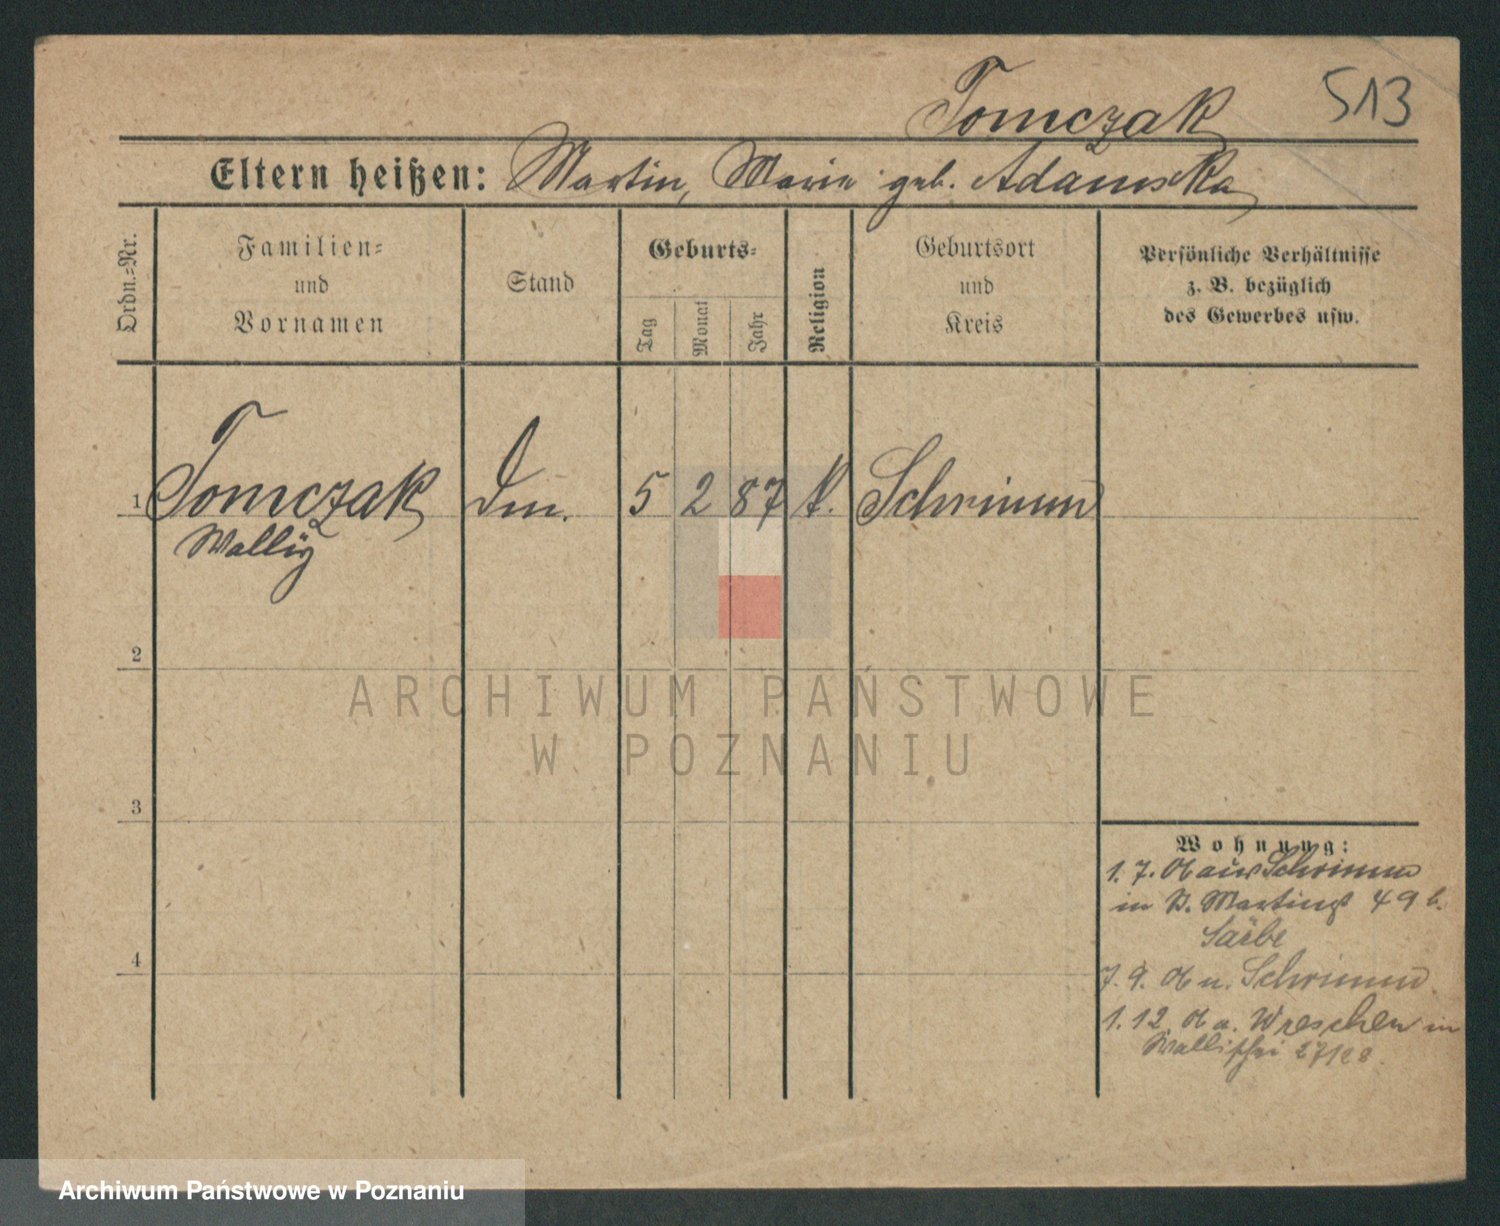 513
Tomczak
Eltern heißen: Martin, Marie geb. Adamska
Ordn.=Nr.
Familien=
und
Vornamen
Stand
Geburts=
Tag
Monat
Jahr
Religion
Geburtsort
und
Kreis
Persönliche Verhältnisse
z. B. bezüglich
des Gewerbes usw.
1 Tomczak 5 2 87 k. Schrimm
2
3
4
ARCHIWUM PAŃSTWOWE
W POZNANIU
Wohnung:
1. 7. 06 aus Schrimm
in St. Martinst 49 b.
7. 9. 06 n. Schrimm.
1. 12. 06 a. Wreschen in
Wallischei 27/28.
Archiwum Państwowe w Poznaniu